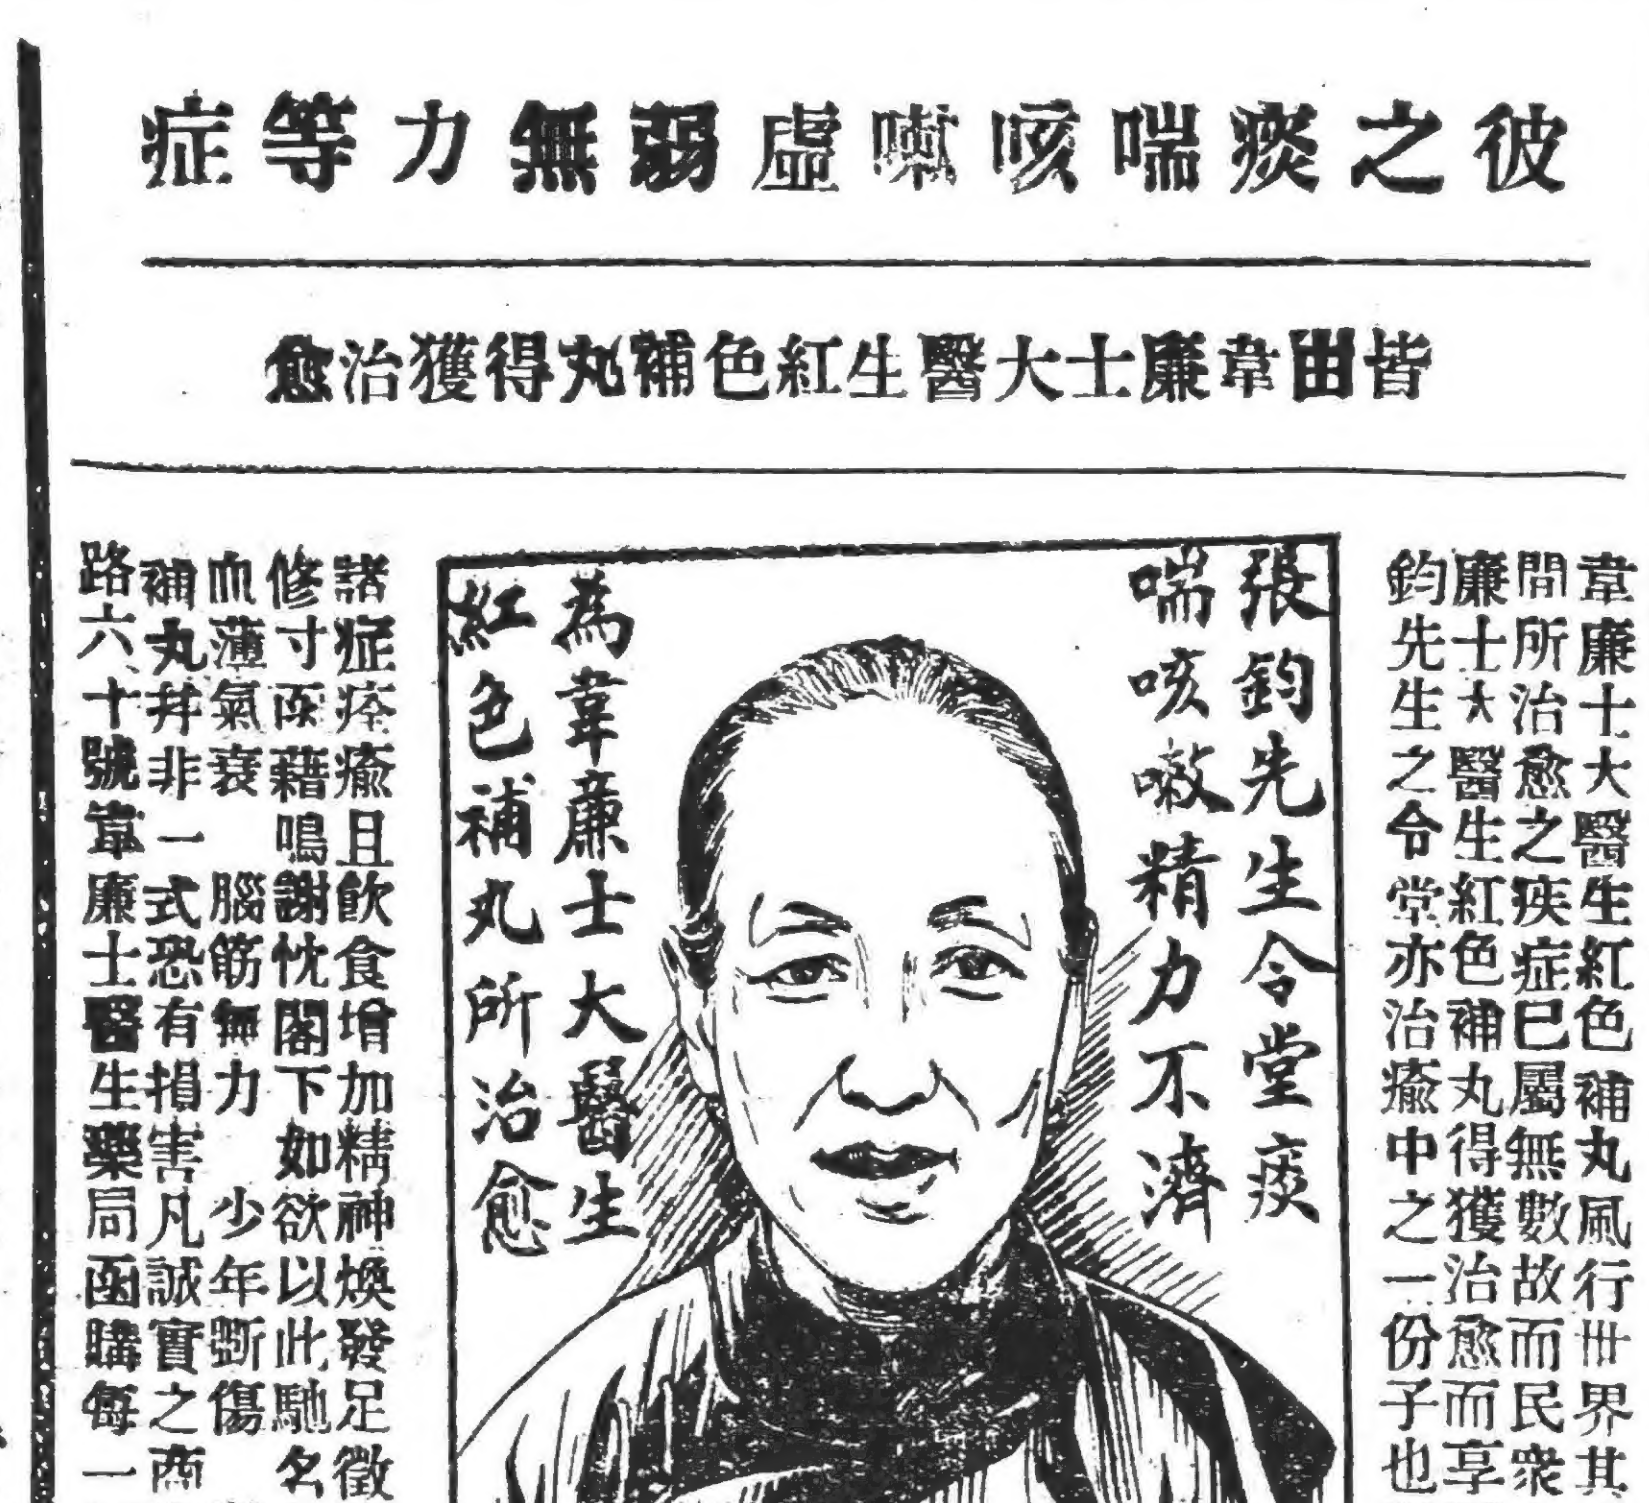 彼之痰喘咳嗽虛弱無力等症
皆由韋廉士大醫生紅色補丸得獲治愈
韋廉士大醫生紅色補丸風行世界其
間所治愈之疾症已屬無數故而民衆
廉士大醫生紅色補丸得獲治愈而享
鈞先生之令堂亦治癒中之一份子也
張鈞先生令堂痰
喘咳嗽精力不濟
為韋廉士大醫生
紅色補丸所治愈
諸症痊癒且飲食增加精神煥發足徵
修寸函藉鳴謝忱閣下如欲以此馳名
血薄氣衰 腦筋無力 少年斵傷
補丸幷非一式恐有損害凡誠實之商
路六十號韋廉士醫生藥局函購每一